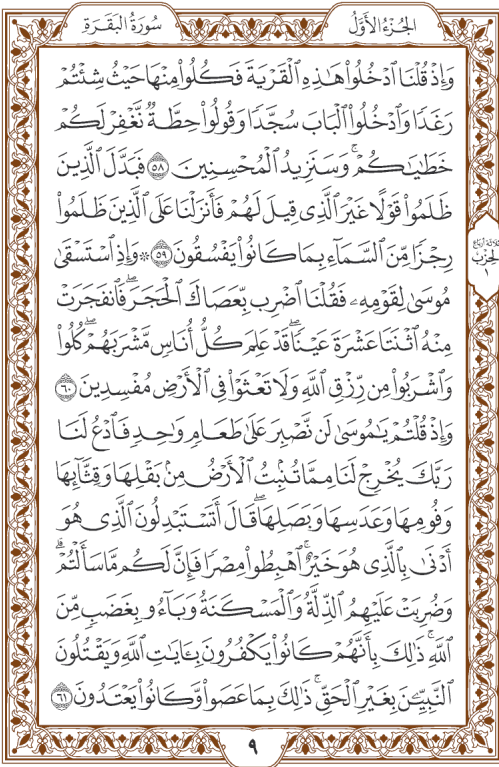 الجُزْءُ الأَوَّلُ
سُورَةُ البَقَرَةِ
وَإِذْ قُلْنَا ٱدْخُلُوا۟ هَٰذِهِ ٱلْقَرْيَةَ فَكُلُوا۟ مِنْهَا حَيْثُ شِئْتُمْ
رَغَدًا وَٱدْخُلُوا۟ ٱلْبَابَ سُجَّدًا وَقُولُوا۟ حِطَّةٌ نَّغْفِرْ لَكُمْ
خَطَٰيَٰكُمْ ۚ وَسَنَزِيدُ ٱلْمُحْسِنِينَ ٥٨ فَبَدَّلَ ٱلَّذِينَ
ظَلَمُوا۟ قَوْلًا غَيْرَ ٱلَّذِى قِيلَ لَهُمْ فَأَنزَلْنَا عَلَى ٱلَّذِينَ ظَلَمُوا۟
رِجْزًا مِّنَ ٱلسَّمَآءِ بِمَا كَانُوا۟ يَفْسُقُونَ ٥٩ ۞ وَإِذِ ٱسْتَسْقَىٰ
مُوسَىٰ لِقَوْمِهِۦ فَقُلْنَا ٱضْرِب بِّعَصَاكَ ٱلْحَجَرَ ۖ فَٱنفَجَرَتْ
مِنْهُ ٱثْنَتَا عَشْرَةَ عَيْنًا ۖ قَدْ عَلِمَ كُلُّ أُنَاسٍ مَّشْرَبَهُمْ ۖ كُلُوا۟
وَٱشْرَبُوا۟ مِن رِّزْقِ ٱللَّهِ وَلَا تَعْثَوْا۟ فِى ٱلْأَرْضِ مُفْسِدِينَ ٦٠
وَإِذْ قُلْتُمْ يَٰمُوسَىٰ لَن نَّصْبِرَ عَلَىٰ طَعَامٍ وَٰحِدٍ فَٱدْعُ لَنَا
رَبَّكَ يُخْرِجْ لَنَا مِمَّا تُنۢبِتُ ٱلْأَرْضُ مِنۢ بَقْلِهَا وَقِثَّآئِهَا
وَفُومِهَا وَعَدَسِهَا وَبَصَلِهَا ۖ قَالَ أَتَسْتَبْدِلُونَ ٱلَّذِى هُوَ
أَدْنَىٰ بِٱلَّذِى هُوَ خَيْرٌ ۚ ٱهْبِطُوا۟ مِصْرًا فَإِنَّ لَكُم مَّا سَأَلْتُمْ ۗ
وَضُرِبَتْ عَلَيْهِمُ ٱلذِّلَّةُ وَٱلْمَسْكَنَةُ وَبَآءُو بِغَضَبٍ مِّنَ
ٱللَّهِ ۗ ذَٰلِكَ بِأَنَّهُمْ كَانُوا۟ يَكْفُرُونَ بِـَٔايَٰتِ ٱللَّهِ وَيَقْتُلُونَ
ٱلنَّبِيِّـۧنَ بِغَيْرِ ٱلْحَقِّ ۗ ذَٰلِكَ بِمَا عَصَوا۟ وَّكَانُوا۟ يَعْتَدُونَ ٦١
ثلاثة أرباع
الحزب
١
٩